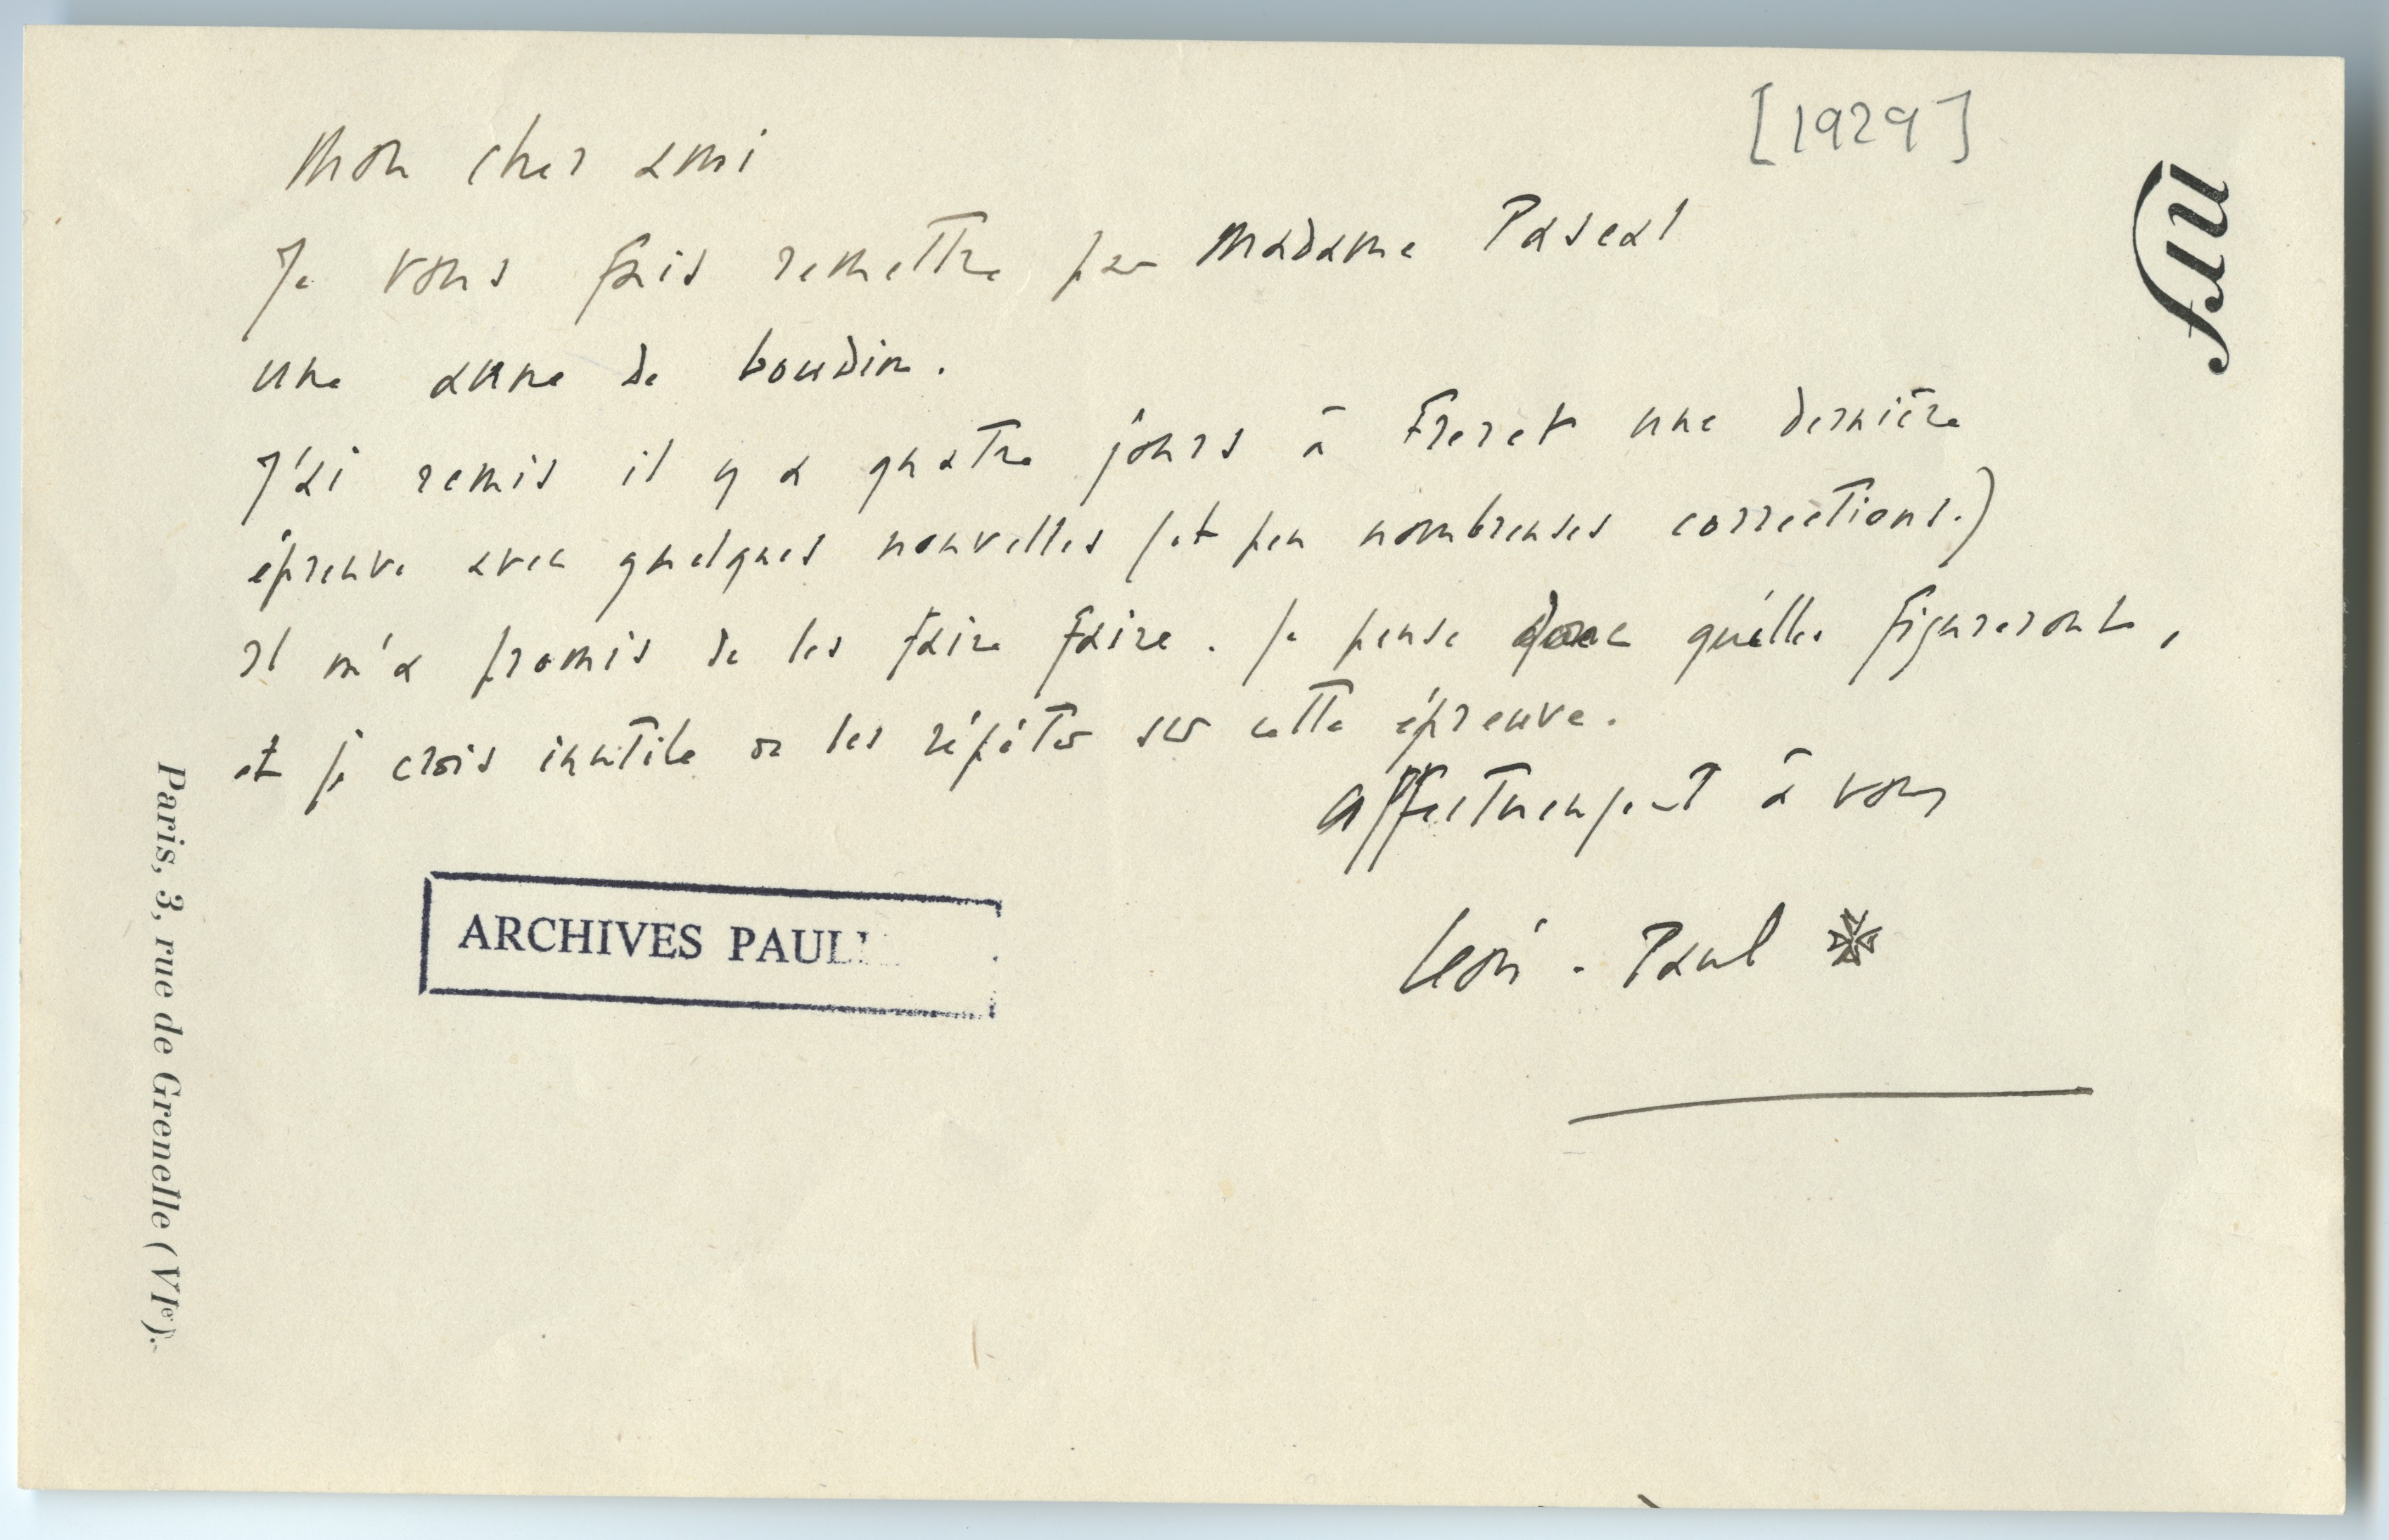 [1929]
nrf
Mon cher ami
Je vous fais remettre par Madame Pascal
une aune de boudin.
J'ai remis il y a quatre jours à Freret une dernière
épreuve avec quelques nouvelles (et peu nombreuses corrections.)
Il m'a promis de les faire faire. Je pense donc qu'elles figureront,
et je crois inutile de les répéter sur cette épreuve.
Affectueusement à vous
Léon-Paul
ARCHIVES PAUL
Paris, 3, rue de Grenelle (VIe).